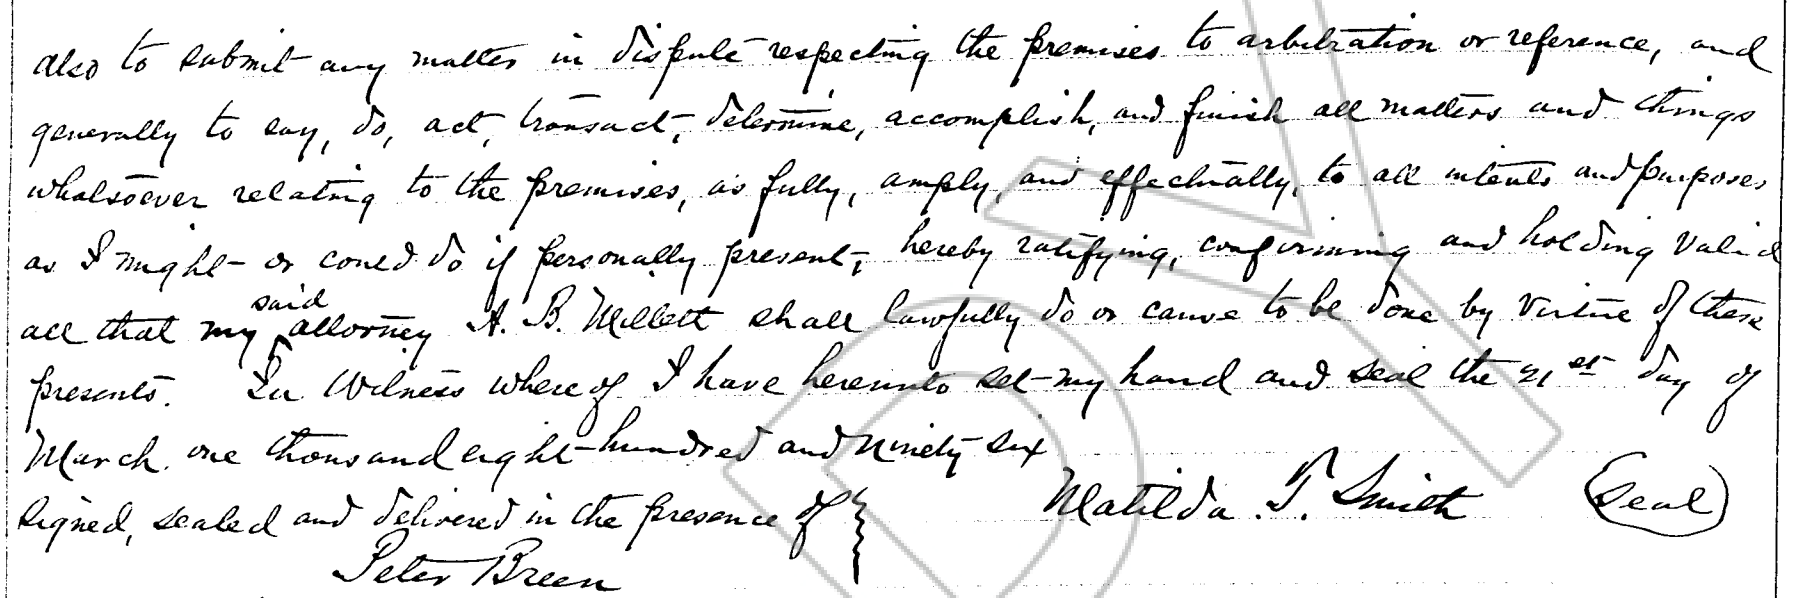 also to submit any matter in dispute respecting the premises to arbitration or reference, and
generally to say, do, act, transact, determine, accomplish, and finish all matters and things
whatsoever relating to the premises, as fully, amply, and effectually, to all intents and purposes
as I might or could do if personally present, hereby ratifying, confirming and holding valid
all that my said attorney A. B. Millett shall lawfully do or cause to be done by virtue of these
presents. In Witness whereof I have hereunto set my hand and seal the 21st day of
March one thousand eight hundred and ninety six
Signed, sealed and delivered in the presence of } Matilda T. Smith (Seal)
Peter Breen